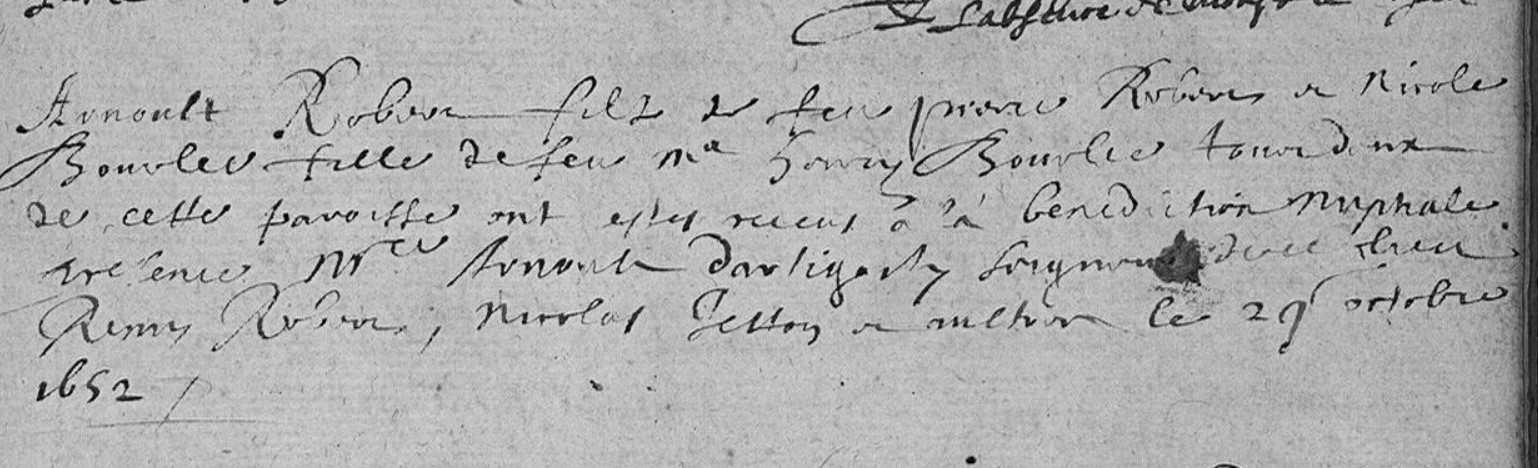 Arnoult Robert filz de feu pierre Robert et Nicole
Bourlet fille de feu Me Henry Bourlet tous deux
de cette paroisse ont estes receus a la benediction nuptiale
presence Mre Arnoult seigneur
Remy Robert, Nicolas et aultres le 29 octobre
1652